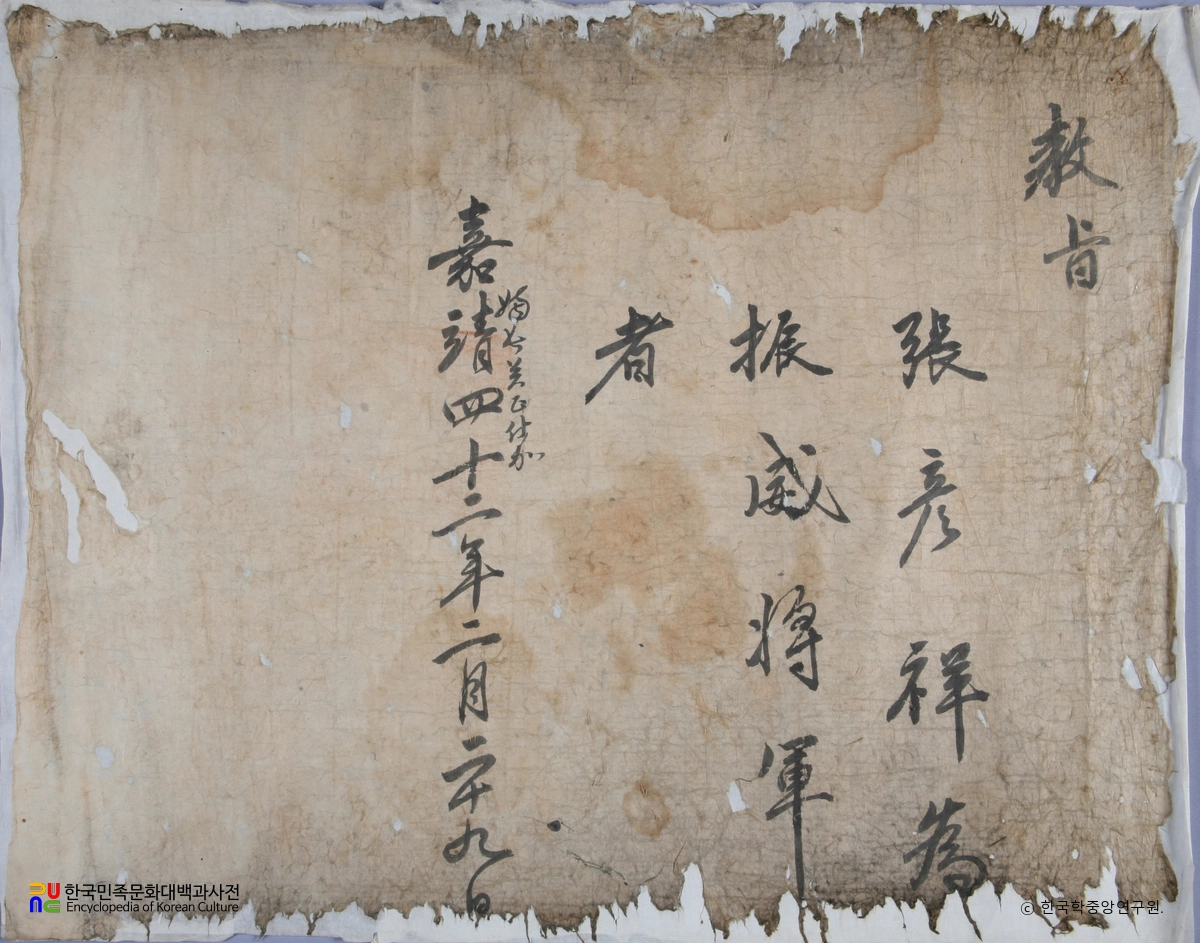 敎旨
張彦祥爲
振威將軍
者
嘉靖四十二年二月二十九日
한국민족문화대백과사전
Encyclopedia of Korean Culture
ⓒ 한국학중앙연구원.